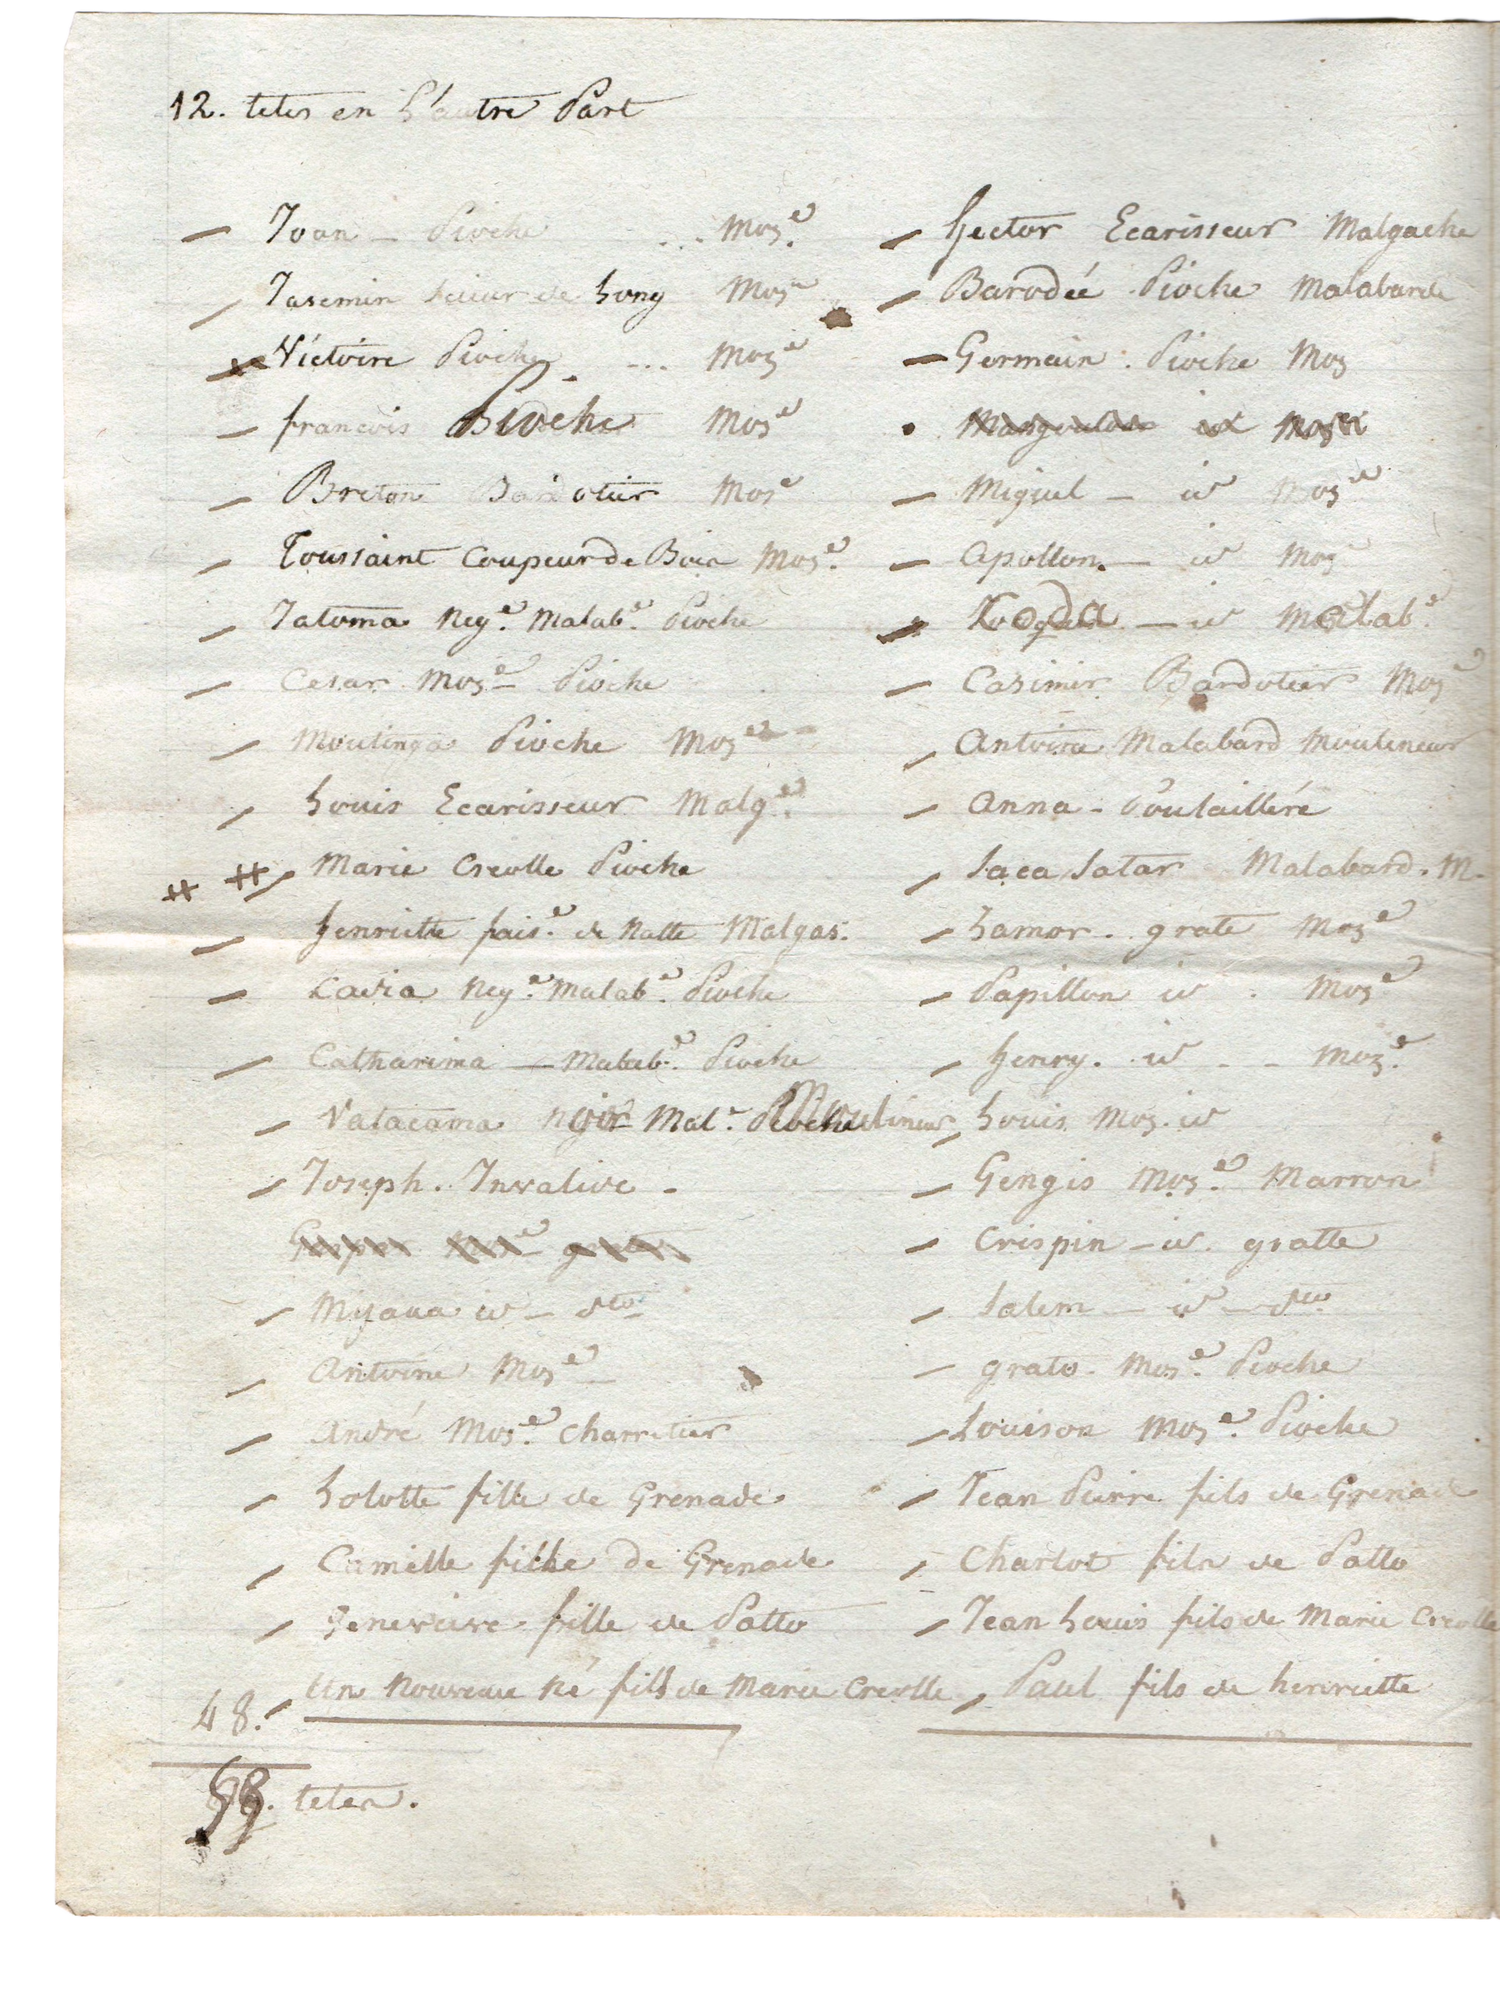 12. tetes en L'autre Part
Joan - Pioche ... Moz.e
Jasemin Scieur de Long Moze
Victoire Pioche ... Moze
francois Pioche Moze
Breton Bardotier Moze
Toussaint Coupeur de Bois Moz.e
Jatoma Neg.e Malab.e Pioche
Cesar Moze Pioche
Moutinga Pioche Moze
Louis Ecarisseur Malg.e
Marie Creolle Pioche
henriette fais.e de Natte Malgas.
Lavia Neg.e Malab.e Pioche
Catharima - Malab.e Pioche
Valacama Mal.e Moulineur
Joseph. Invalide -
Myaua id - dto
Antoine Moze
André Moz.e Charretier
Lolotte fille de Grenade
Camille fille de Grenade
Genevieve fille de Patto
48. Un Nouveau Né fils de Marie Creolle
tetes.
hector Ecarisseur Malgache
Barodée Pioche Malabarde
Germain . Pioche Moz
Miguel - id Moze
Apollon. - id Moz
- id Malab.e
Casimir Bardotier Moze
Antoine Malabard Moulineur
Anna - Poulaillére
Saca Satar Malabard. M.
Lamor . grate Moze
Papillon id . Moze
henry . id - - Moz.e
Louis Moz. id
Gengis Moz.e Marron
Crispin - id. gratte
Salem - id - dto
grato. Moz.e Pioche
Louison Moz.e Pioche
Jean Pierre fils de Grenade
Charlot fils de Patto
Jean Louis fils de Marie Creolle
Paul fils de henriette